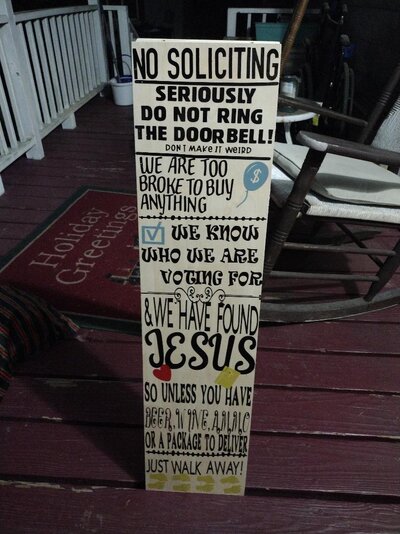 NO SOLICITING
SERIOUSLY
DO NOT RING
THE DOORBELL!
DON'T MAKE IT WEIRD
WE ARE TOO
BROKE TO BUY
ANYTHING
$
WE KNOW
WHO WE ARE
VOTING FOR
& WE HAVE FOUND
JESUS
SO UNLESS YOU HAVE
BEER, WINE,
OR A PACKAGE TO DELIVER
JUST WALK AWAY!
Holiday
Greetings